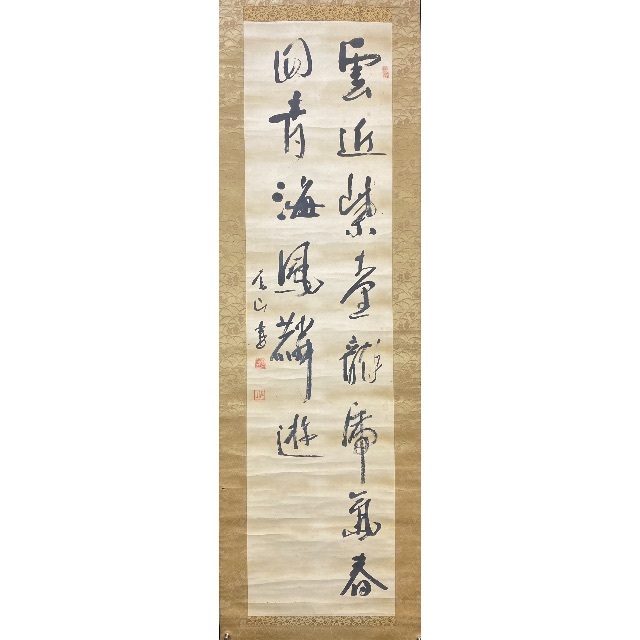 雲近紫臺龍虎春
回青海鳳麟遊
山書